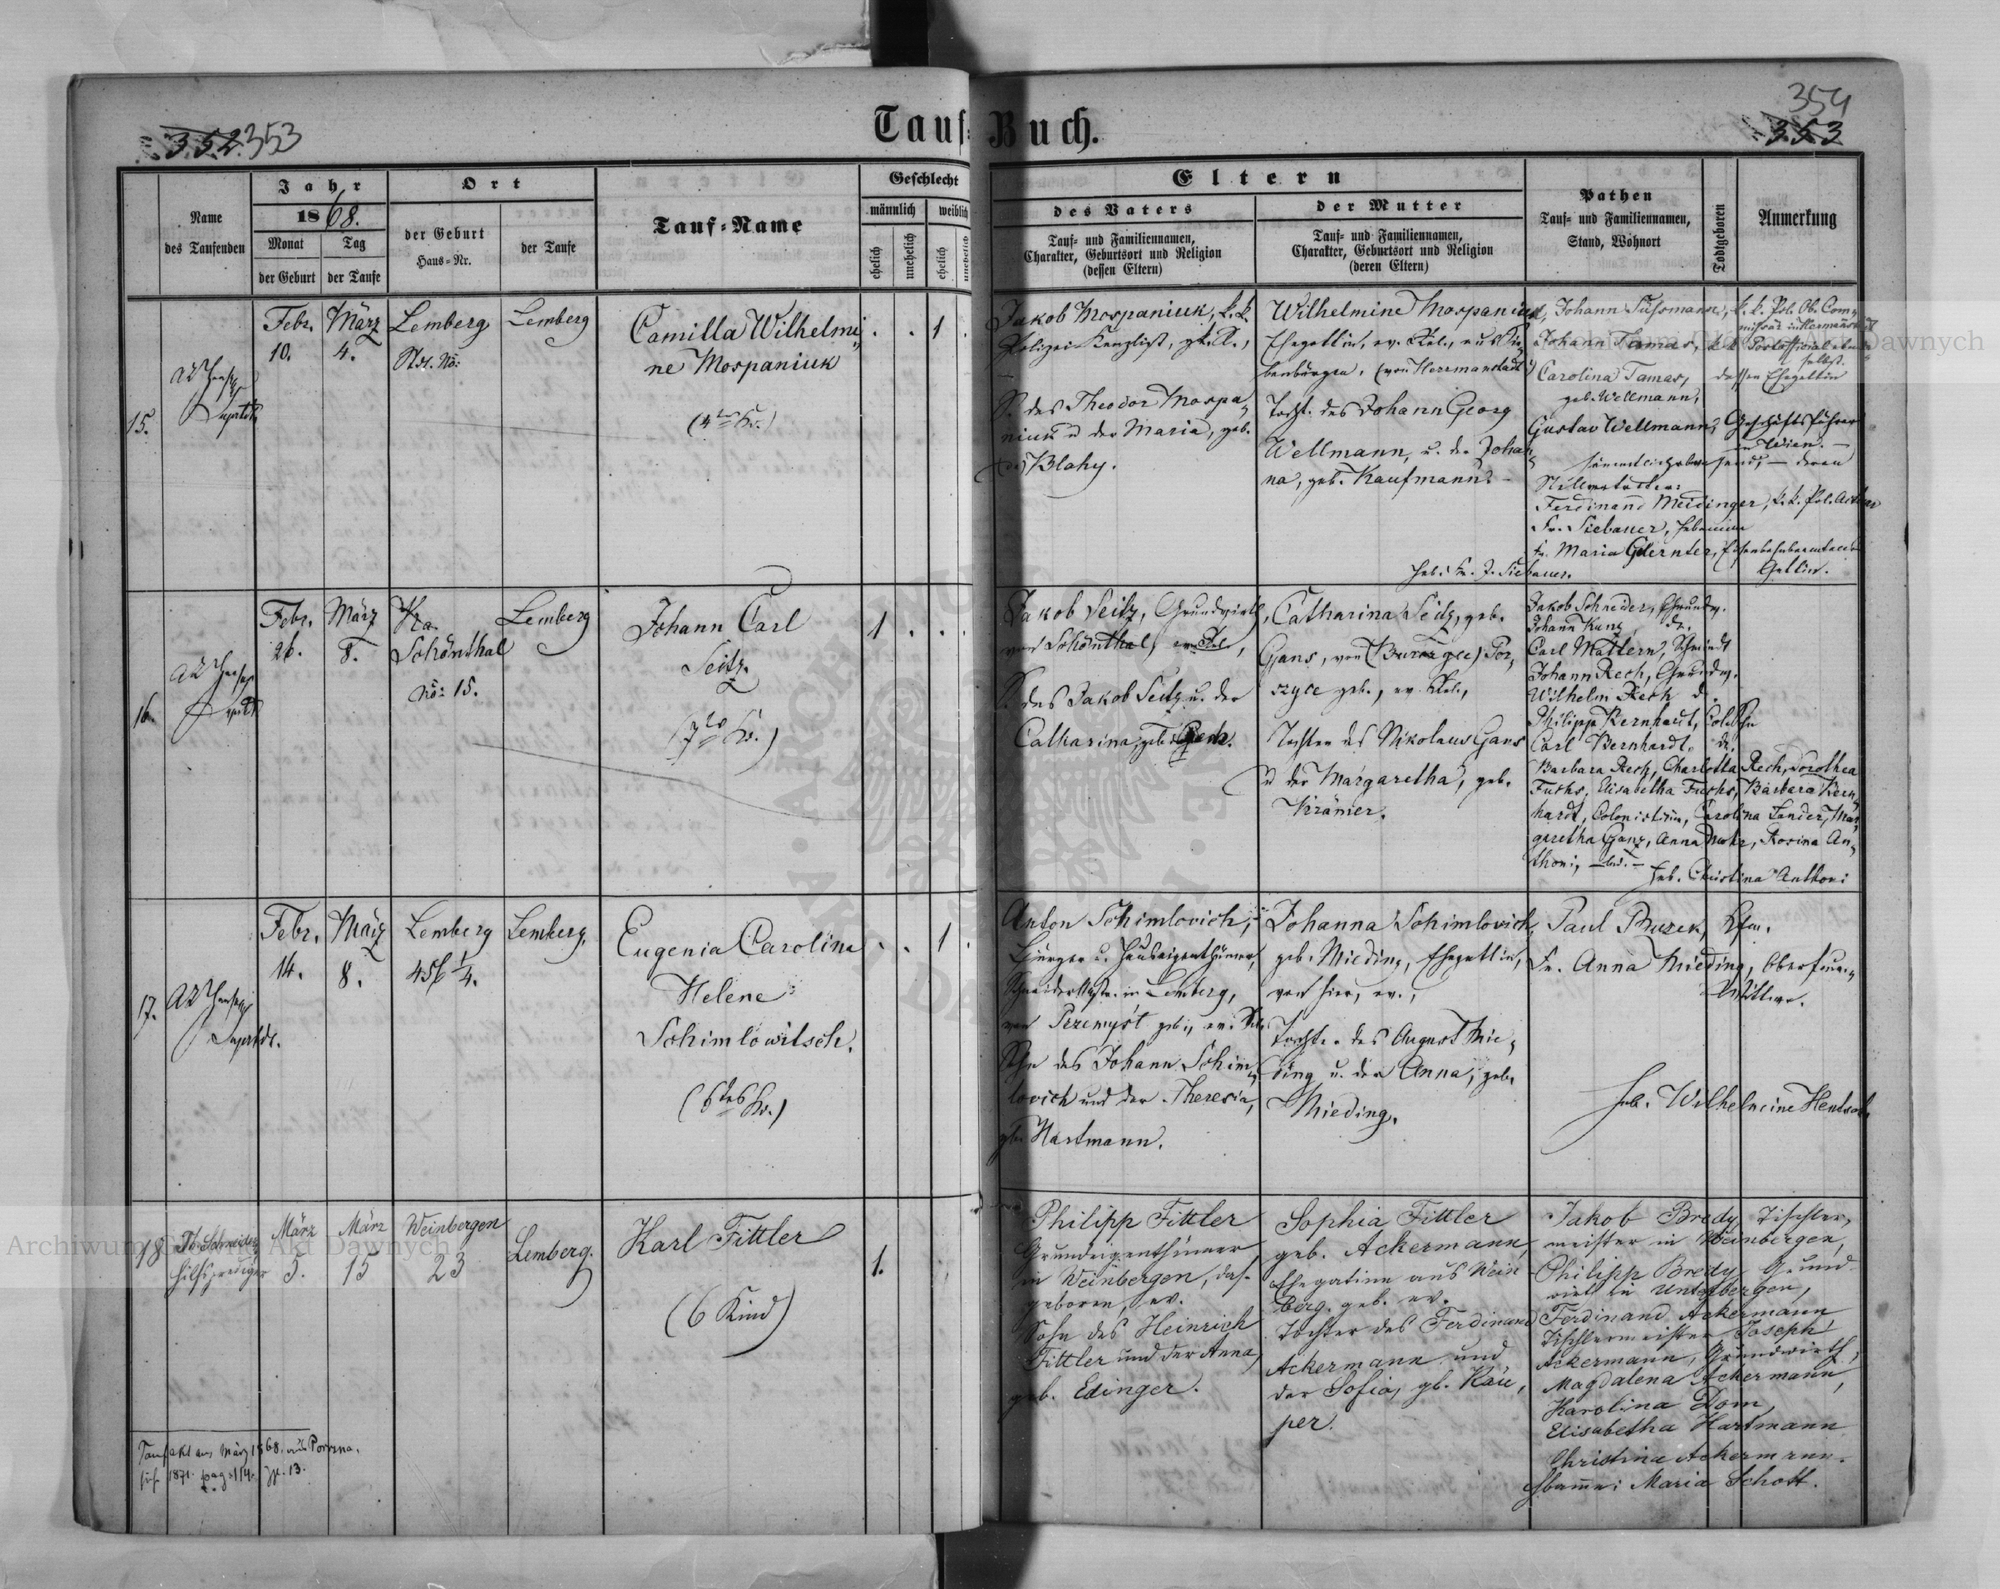 Tauf-Buch.
352 353
354
353
Name
des Taufenden
Jahr
1868.
Monat
der Geburt
Tag
der Taufe
Ort
der Geburt
Haus-Nr.
der Taufe
Tauf-Name
Geschlecht
männlich
weiblich
ehelich
unehelich
ehelich
unehelich
Eltern
des Vaters
Tauf- und Familiennamen,
Charakter, Geburtsort und Religion
(dessen Eltern)
der Mutter
Tauf- und Familiennamen,
Charakter, Geburtsort und Religion
(deren Eltern)
Pathen
Tauf- und Familiennamen,
Stand, Wohnort
Todtgeboren
Anmerkung
15.
Febr.
10.
März
4.
Lemberg
Lemberg
Camilla Wilhelmi-
ne Mospaniuk
1
Jakob Mospaniuk, k.k.
Polizei-Kanzlist,
S. des Theodor Mospa-
niuk u der Maria, geb.
Blahy.
Wilhelmine Mospaniuk,
Ehegattin, ev. Rel., aus Sie-
benbürgen, (von Herrmanstadt)
Tocht. des Johann Georg
Wellmann, u. der Johan-
na, geb. Kaufmann.
Johann Süssmann,
Johann Tamas,
Carolina Tamas,
geb. Wellmann,
dessen Ehegattin
Gustav Wellmann, Geschäftsführer
in Wien.
Ferdinand Meidinger,
Fr. Siebauer, Hebamme
Fr. Maria Glernter,
Gattin.
Heb. Fr. J. Siebauer.
16.
Febr.
26.
März
8.
Schönthal
No: 15.
Lemberg
Johann Carl
Seitz
1
Jakob Seitz, Grundwirth
von Schönthal, ev. Rel.,
S. des Jakob Seitz u. der
Catharina, geb.
Catharina Seitz, geb.
Gans, von
geb., ev. Rel.,
Tochter des Nikolaus Gans
u der Margaretha, geb.
Krämer.
Jakob Schneider, Grundw.
Johann Kunz do.
Carl Mattern, Schmidt
Johann Rech, Grundw.
Wilhelm Rech d.
Philipp Bernhard,
Carl Bernhardt do.
Barbara Rech, Charlotta Rech, Dorothea
Fuchs, Elisabetha Fuchs, Barbara Bern-
hardt, Colonistin, Carolina Sander, Mar-
garetha Ganz, Anna, Rosina An-
thoni,
Heb. Christina Anthoni
17.
Febr.
14.
März
8.
Lemberg
456 1/4.
Lemberg.
Eugenia Carolina
Helene
Schimlowitsch.
1
Anton Schimlovich,
Bürger u. Hauseigenthümer,
in Lemberg,
von Przemyśl geb., ev. Rel.
Sohn des Johann Schim-
lovich und der Theresia,
geb. Hartmann.
Johanna Schimlovich,
geb. Mieding, Ehegattin,
von hier, ev.,
Tochter des August Mie-
ding u. der Anna, geb.
Mieding.
Paul Buzek, Kfm.
Fr. Anna Mieding,
Wittwe.
Heb. Wilhelmine Hentsch
18.
Th. Schneider
Hilfsprediger
März
5.
März
15
Weinbergen
23
Lemberg.
Karl Fittler
(6 Kind)
1.
Philipp Fittler
Grundeigenthümer
in Weinbergen, das.
geboren, ev.
Sohn des Heinrich
Fittler und der Anna,
geb. Edinger.
Sophia Fittler
geb. Ackermann,
Ehegatinn aus Wein-
berg. geb. ev.
Tochter des Ferdinand
Ackermann und
der Sofia, gb. Kau-
per.
Jakob Bredy, Tischler-
meister in Weinbergen,
Philipp Bredy, Grund-
wirt in Unterbergen,
Ferdinand Ackermann
Tischlermeister Joseph
Ackermann, Grundwirth,
Magdalena Ackermann,
Karolina Dom,
Elisabetha Hartmann
Christina Ackermann.
Hbamme: Maria Schott.
Taufakt aus März 1868. aus
1871. pag. 114. 13.
Archiwum Główne Akt Dawnych